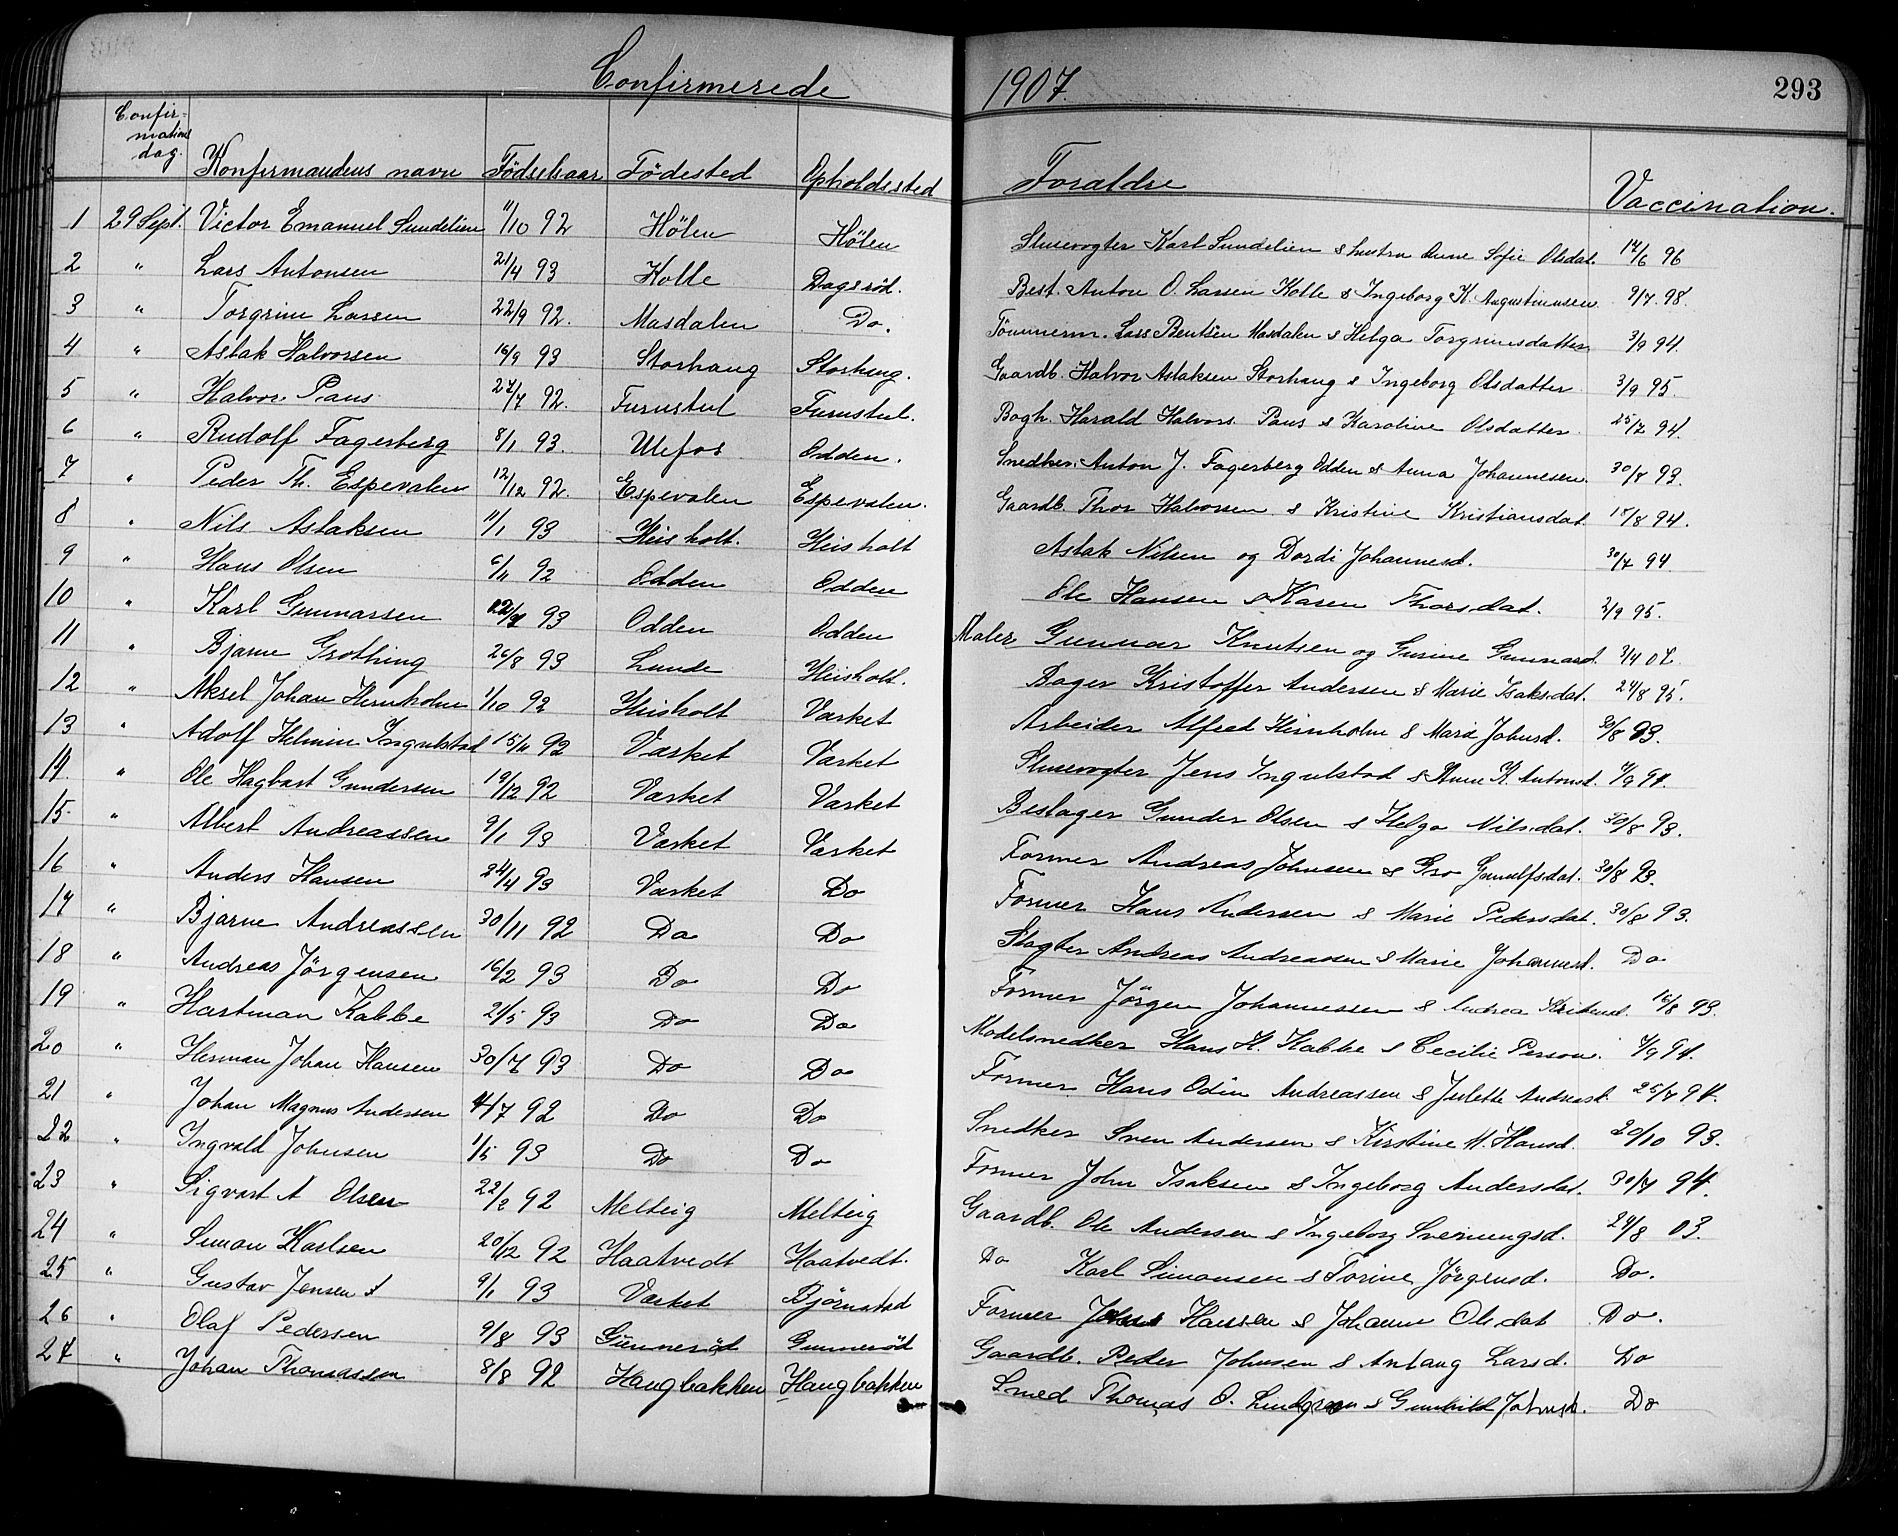 Confirmerede 1907. 293
Confir-
mations
dag. Konfirmandens navn Födselsaar Födested Opholdssted Foraldre Vaccination.
1 29 Sept. Victor Emanuel Sundelien 11/10 92 Hölen Hölen Slusevogter Karl Sundelien & hustru Anne Sofie Olsdat. 14/6 96
2 " Lars Antonsen 21/4 93 Kolle Dagsröd. Best. Anton O. Larsen Kolle & Ingeborg K. Augustinussen 9/7. 98.
3 " Torgrim Larsen 22/9 92. Masdalen Do. Tömmerm. Lars Bentsen Masdalen & Helga Torgrimsdatter 3/9 94.
4 " Aslak Halvorsen 16/9 93 Storhaug Storhaug. Gaardb. Halvor Aslaksen Storhaug & Ingeborg Olsdatter 3/9 95.
5 " Halvor Paus 27/7 92. Furustul Furustul. Bogh. Harald Halvors. Paus & Karoline Olsdatter 25/7 94.
6 " Rudolf Fagerberg 8/1 93. Ulefos Odden. Snedker. Anton J. Fagerberg Odden & Anna Johannesen. 30/8 93.
7 " Peder Th. Espevalen 12/12 92. Espevalen Espevalen. Gaardb. Thor Halvorsen & Kristine Kristiansdat. 15/8 94.
8 " Nils Aslaksen 11/1 93 Heisholt. Heisholt Aslak Nilsen og Dordi Johannesd. 30/7 94.
9 " Hans Olsen 6/11 92 Odden Odden Ole Hansen & Karen Thorsdat. 2/9 95.
10 " Karl Gunnarsen 93 Odden Odden Maler Gunnar Knutsen og Gurine Gunnarsd. 3/4 07.
11 " Bjarne Grothing 26/8 93 Lunde Heisholt. Bager Kristoffer Andersen & Marie Isaksdat. 24/8 95.
12 " Aksel Johan Hernholm 1/10 92 Heisholt Værket Arbeider Alfred Hernholm & Mara Johnsd. 30/8 93.
13 " Adolf Helmin Ingulstad 15/11 92 Værket Værket Slusevogter Jens Ingulstad & Anne K. Antonsd. 4/9 94.
14. " Ole Hagbart Gundersen 19/12 92 Værket Værket Beslager Gunder Olsen & Helga Nilsdat. 30/8 93.
15. " Albert Andreassen 9/1 93 Værket Værket Former Andreas Johnsen & Gro Gunulfsdat. 30/8 93.
16 " Anders Hansen 24/4 93 Værket Do Former Hans Andersen & Marie Pedersdat. 30/8 93.
17 " Bjarne Andreassen 30/11 92 Do Do Slagter Andreas Andreassen & Marie Johannesd. Do
18 " Andreas Jörgensen 16/2 93 Do Do Former Jörgen Johannessen & Andrea 16/8 93.
19 " Hartman Kabbe 21/5 93 Do Do Modelsnedker Hans H. Kabbe & Cecilie Person. 4/9 94.
20 " Herman Johan Hansen 30/6 93 Do Do Former Hans Odin Andreassen & Julette Andreasd. 25/7 94.
21 " Johan Magnus Andersen 4/7 92 Do Do Snedker Sven Andersen & Kirstine M. Hansd. 20/10 93.
22 " Ingvald Johnsen 1/5 93 Do Do Former John Isaksen & Ingeborg Andersdat. 30/7 94.
23 " Sigvart A Olsen 22/2 92 Melteig Melteig Gaardb. Ole Andersen & Ingeborg Sveinungsd. 24/8 03.
24 " Simon Karlsen 20/12 92 Haatvedt Haatvedt. Do Karl Simonsen & Torine Jörgensd. Do.
25 " Gustav Jensen 9/1 93 Værket Björnstad Former Jens Hansen & Johanne Olsdat Do.
26 " Olaf Pedersen 9/8 93 Gunneröd Gunneröd Gaardb. Peder Johnsen & Anlaug Larsd. Do
27 " Johan Thomassen 8/8 92 Haugbakken Haugbakken Smed Thomas O. Lindgren & Gunhild Johnsd. Do